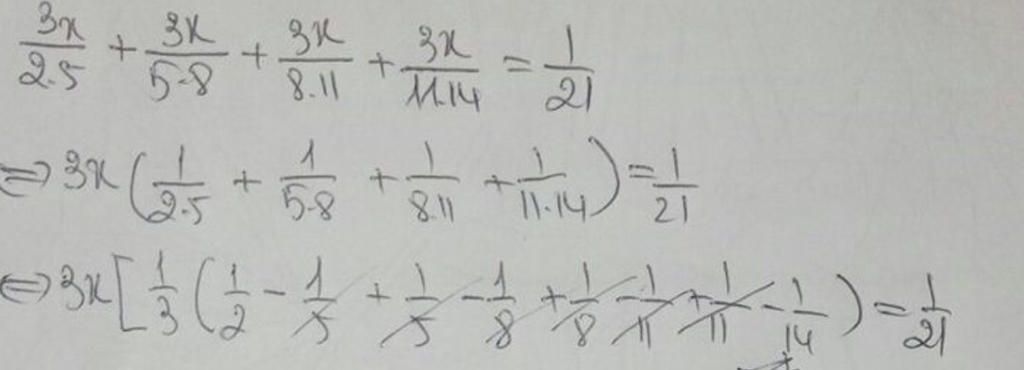 3x/2.5 + 3x/5.8 + 3x/8.11 + 3x/11.14 = 1/21
⇔ 3x(1/2.5 + 1/5.8 + 1/8.11 + 1/11.14) = 1/21
⇔ 3x[1/3(1/2 - 1/5 + 1/5 - 1/8 + 1/8 - 1/11 + 1/11 - 1/14) = 1/21